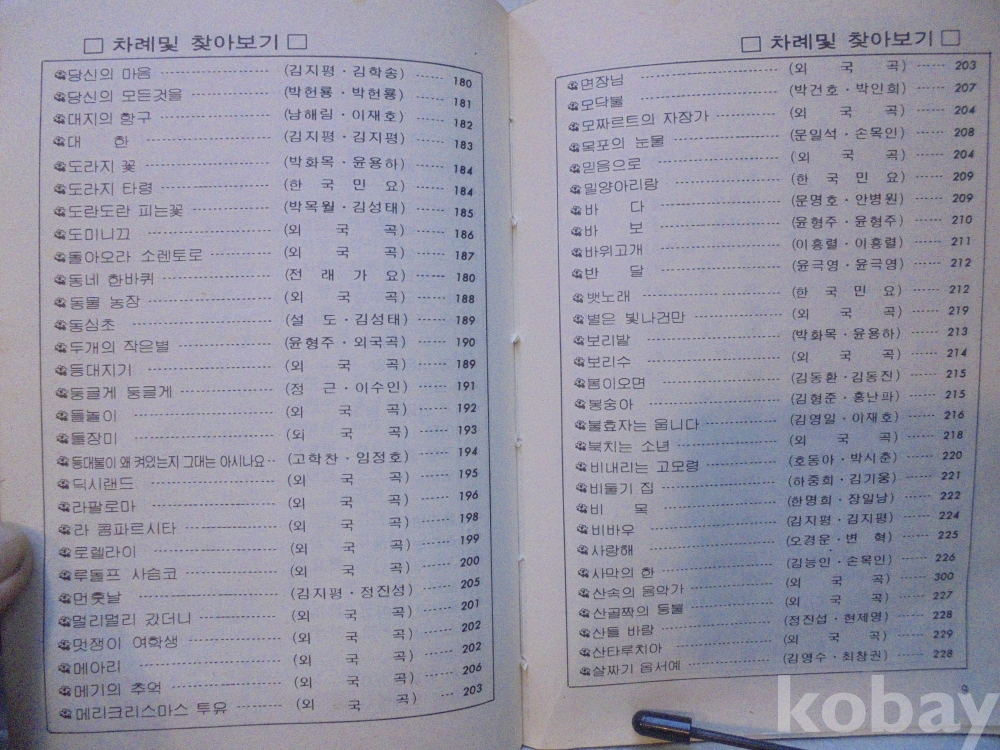 □ 차례및 찾아보기 □
당신의 마음 (김지평·김학송) 180
당신의 모든것을 (박헌룡·박헌룡) 181
대지의 항구 (남해림·이재호) 182
대 한 (김지평·김지평) 183
도라지 꽃 (박화목·윤용하) 184
도라지 타령 (한 국 민 요) 184
도란도란 피는꽃 (박목월·김성태) 185
도미니끄 (외 국 곡) 186
돌아오라 소렌토로 (외 국 곡) 187
동네 한바퀴 (전 래 가 요) 180
동물 농장 (외 국 곡) 188
동심초 (설 도·김성태) 189
두개의 작은별 (윤형주·외국곡) 190
등대지기 (외 국 곡) 189
둥글게 둥글게 (정 근·이수인) 191
들놀이 (외 국 곡) 192
들장미 (외 국 곡) 193
등대불이 왜 켜있는지 그대는 아시나요 (고학찬·임정호) 194
딕시랜드 (외 국 곡) 195
라팔로마 (외 국 곡) 196
라 콤파르시타 (외 국 곡) 198
로렐라이 (외 국 곡) 199
루돌프 사슴코 (외 국 곡) 200
먼훗날 (김지평·정진성) 205
멀리멀리 갔더니 (외 국 곡) 201
멋쟁이 여학생 (외 국 곡) 202
메아리 (외 국 곡) 202
메기의 추억 (외 국 곡) 206
메리크리스마스 투유 (외 국 곡) 203
□ 차례및 찾아보기 □
면장님 (외 국 곡) 203
모닥불 (박건호·박인희) 207
모짜르트의 자장가 (외 국 곡) 204
목포의 눈물 (문일석·손목인) 208
믿음으로 (외 국 곡) 204
밀양아리랑 (한 국 민 요) 209
바 다 (문명호·안병원) 209
바 보 (윤형주·윤형주) 210
바위고개 (이흥렬·이흥렬) 211
반 달 (윤극영·윤극영) 212
뱃노래 (한 국 민 요) 212
별은 빛나건만 (외 국 곡) 219
보리밭 (박화목·윤용하) 213
보리수 (외 국 곡) 214
봄이오면 (김동환·김동진) 215
봉숭아 (김형준·홍난파) 215
불효자는 웁니다 (김영일·이재호) 216
북치는 소년 (외 국 곡) 218
비내리는 고모령 (호동아·박시춘) 220
비둘기 집 (하중희·김기웅) 221
비 목 (한명희·장일남) 222
비바우 (김지평·김지평) 224
사랑해 (오경운·변 혁) 225
사막의 한 (김능인·손목인) 226
산속의 음악가 (외 국 곡) 300
산골짝의 등불 (외 국 곡) 227
산들 바람 (정진섭·현제명) 228
산타루치아 (외 국 곡) 229
살짜기 옵서예 (김영수·최창권) 228
9
kobay